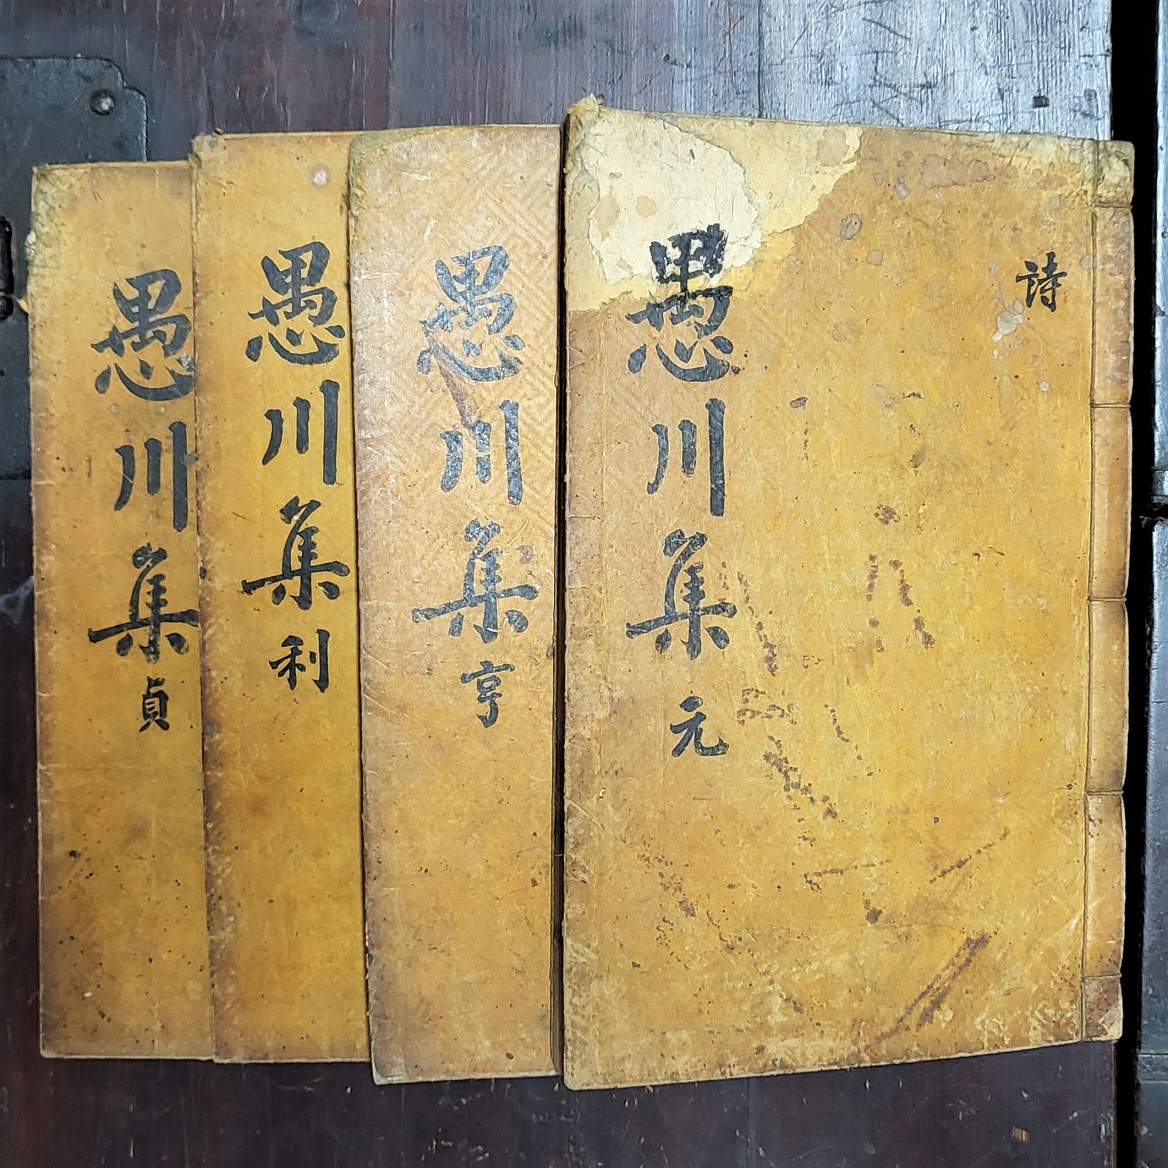 詩
愚川集 元
愚川集 亨
愚川集 利
愚川集 貞